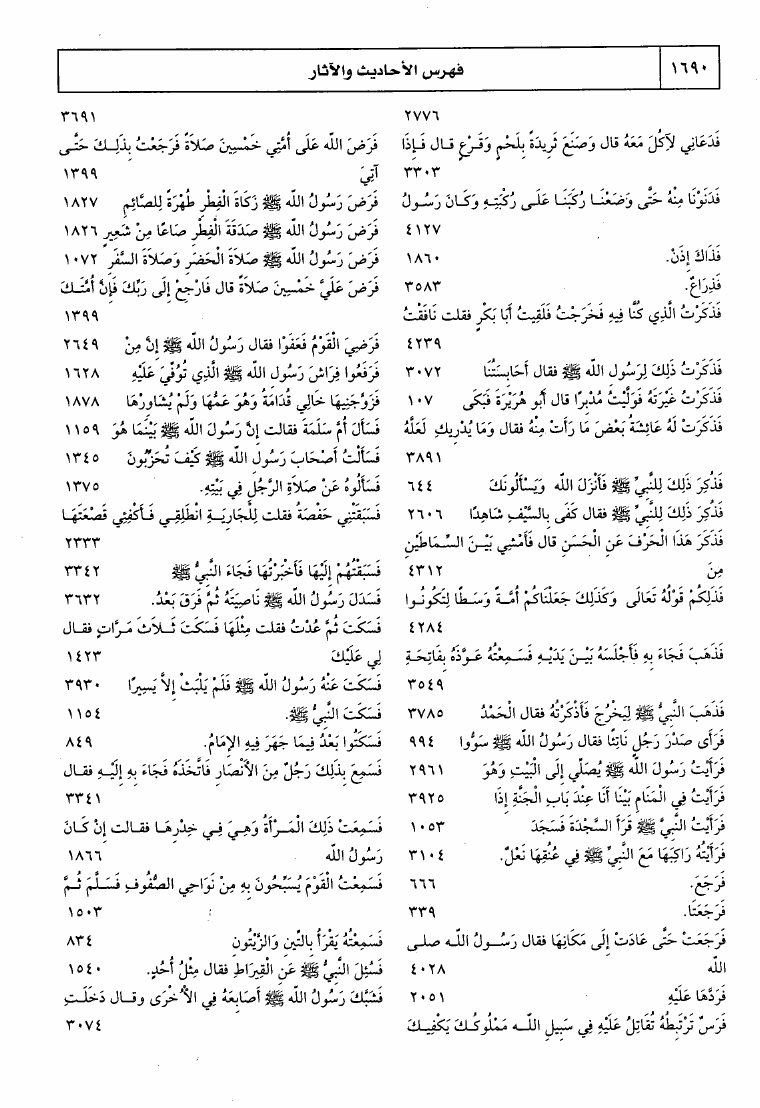 ١٦٩٠
فهرس الأحاديث والآثار
٢٧٧٦
فَدَعَانِي لآكُلَ مَعَهُ قال وَصَنَعَ ثَرِيدَةً بِلَحْمٍ وَقَرْعٍ قال فَإِذَا
٣٣٠٣
فَدَنَوْنَا مِنْهُ حَتَّى وَضَعْنَا رُكَبَنَا عَلَى رُكْبَتِهِ وَكَانَ رَسُولُ
٤١٢٧
فَذَاكَ إِذَنْ. ١٨٦٠
فَذِرَاعٌ. ٣٥٨٣
فَذَكَرْتُ الَّذِي كُنَّا فِيهِ فَخَرَجْتُ فَلَقِيتُ أَبَا بَكْرٍ فقلت نَافَقْتُ
٤٢٣٩
فَذَكَرْتُ ذَلِكَ لِرَسُولِ اللَّه ﷺ فقال أَحَابِسَتُنَا ٣٠٧٢
فَذَكَرْتُ غَيْرَتَهُ فَوَلَّيْتُ مُدْبِرًا قال أَبُو هُرَيْرَةَ فَبَكَى ١٠٧
فَذَكَرَتْ لَهُ عَائِشَةُ بَعْضَ مَا رَأَتْ مِنْهُ فقال وَمَا يُدْرِيكِ لَعَلَّهُ
٣٨٩١
فَذُكِرَ ذَلِكَ لِلنَّبِيِّ ﷺ فَأَنْزَلَ اللَّه وَيَسْأَلُونَكَ ٦٤٤
فَذُكِرَ ذَلِكَ لِلنَّبِيِّ ﷺ فقال كَفَى بِالسَّيْفِ شَاهِدًا ٢٦٠٦
فَذَكَرَ هَذَا الْحَرْفَ عَنِ الْحَسَنِ قال فَأَمْشِي بَيْنَ السِّمَاطَيْنِ
مِنَ ٤٣١٢
فَذَلِكُمْ قَوْلُهُ تَعَالَى وَكَذَلِكَ جَعَلْنَاكُمْ أُمَّةً وَسَطًا لِتَكُونُوا
٤٢٨٤
فَذَهَبَ فَجَاءَ بِهِ فَأَجْلَسَهُ بَيْنَ يَدَيْهِ فَسَمِعْتُهُ عَوَّذَهُ بِفَاتِحَةِ
٣٥٤٩
فَذَهَبَ النَّبِيُّ ﷺ لِيَخْرُجَ فَأَذْكَرْتُهُ فقال الْحَمْدُ ٣٧٨٥
فَرَأَى صَدْرَ رَجُلٍ نَاتِئًا فقال رَسُولُ اللَّه ﷺ سَوُّوا ٩٩٤
فَرَأَيْتُ رَسُولَ اللَّه ﷺ يُصَلِّي إِلَى الْبَيْتِ وَهُوَ ٢٩٦١
فَرَأَيْتُ فِي الْمَنَامِ بَيْنَا أَنَا عِنْدَ بَابِ الْجَنَّةِ إِذَا ٣٩٢٥
فَرَأَيْتُ النَّبِيَّ ﷺ قَرَأَ السَّجْدَةَ فَسَجَدَ ١٠٥٣
فَرَأَيْتُهُ رَاكِبَهَا مَعَ النَّبِيِّ ﷺ فِي عُنُقِهَا نَعْلٌ. ٣١٠٤
فَرَجَعَ. ٦٦٦
فَرَجَعَتَا. ٣٣٩
فَرَجَعَتْ حَتَّى عَادَتْ إِلَى مَكَانِهَا فقال رَسُولُ اللَّه صلى
اللَّه ٤٠٢٨
فَرَدَّهَا عَلَيْهِ ٢٠٥١
فَرَسٌ تَرْتَبِطُهُ تُقَاتِلُ عَلَيْهِ فِي سَبِيلِ اللَّه مَمْلُوكُكَ يَكْفِيكَ
٣٦٩١
فَرَضَ اللَّه عَلَى أُمَّتِي خَمْسِينَ صَلاَةً فَرَجَعْتُ بِذَلِكَ حَتَّى
آتِيَ ١٣٩٩
فَرَضَ رَسُولُ اللَّه ﷺ زَكَاةَ الْفِطْرِ طُهْرَةً لِلصَّائِمِ ١٨٢٧
فَرَضَ رَسُولُ اللَّه ﷺ صَدَقَةَ الْفِطْرِ صَاعًا مِنْ شَعِيرٍ ١٨٢٦
فَرَضَ رَسُولُ اللَّه ﷺ صَلاَةَ الْحَضَرِ وَصَلاَةَ السَّفَرِ ١٠٧٢
فَرَضَ عَلَيَّ خَمْسِينَ صَلاَةً قال فَارْجِعْ إِلَى رَبِّكَ فَإِنَّ أُمَّتَكَ
١٣٩٩
فَرَضِيَ الْقَوْمُ فَعَفَوْا فقال رَسُولُ اللَّه ﷺ إِنَّ مِنْ ٢٦٤٩
فَرَفَعُوا فِرَاشَ رَسُولِ اللَّه ﷺ الَّذِي تُوُفِّيَ عَلَيْهِ ١٦٢٨
فَزَوَّجَنِيهَا خَالِي قُدَامَةُ وَهُوَ عَمُّهَا وَلَمْ يُشَاوِرْهَا ١٨٧٨
فَسَأَلَ أُمَّ سَلَمَةَ فقالت إِنَّ رَسُولَ اللَّه ﷺ بَيْنَمَا هُوَ ١١٥٩
فَسَأَلْتُ أَصْحَابَ رَسُولِ اللَّه ﷺ كَيْفَ تُحَزِّبُونَ ١٣٤٥
فَسَأَلُوهُ عَنْ صَلاَةِ الرَّجُلِ فِي بَيْتِهِ. ١٣٧٥
فَسَبَقَتْنِي حَفْصَةُ فقلت لِلْجَارِيَةِ انْطَلِقِي فَأَكْفِئِي قَصْعَتَهَا
٢٣٣٣
فَسَبَقْتُهُمْ إِلَيْهَا فَأَخْبَرْتُهَا فَجَاءَ النَّبِيُّ ﷺ ٣٣٤٢
فَسَدَلَ رَسُولُ اللَّه ﷺ نَاصِيَتَهُ ثُمَّ فَرَقَ بَعْدُ. ٣٦٣٢
فَسَكَتَ ثُمَّ عُدْتُ فقلت مِثْلَهَا فَسَكَتَ ثَلاَثَ مَرَّاتٍ فقال
لِي عَلَيْكَ ١٤٢٣
فَسَكَتَ عَنْهُ رَسُولُ اللَّه ﷺ فَلَمْ يَلْبَثْ إِلاَّ يَسِيرًا ٣٩٣٠
فَسَكَتَ النَّبِيُّ ﷺ. ١١٥٤
فَسَكَتُوا بَعْدُ فِيمَا جَهَرَ فِيهِ الإِمَامُ. ٨٤٩
فَسَمِعَ بِذَلِكَ رَجُلٌ مِنَ الأَنْصَارِ فَاتَّخَذَهُ فَجَاءَ بِهِ إِلَيْهِ فقال
٣٣٤١
فَسَمِعَتْ ذَلِكَ الْمَرْأَةُ وَهِيَ فِي خِدْرِهَا فقالت إِنْ كَانَ
رَسُولُ اللَّه ١٨٦٦
فَسَمِعْتُ الْقَوْمَ يُسَبِّحُونَ بِهِ مِنْ نَوَاحِي الصُّفُوفِ فَسَلَّمَ ثُمَّ
١٥٠٣
فَسَمِعْتُهُ يَقْرَأُ بِالتِّينِ وَالزَّيْتُونِ ٨٣٤
فَسُئِلَ النَّبِيُّ ﷺ عَنِ الْقِيرَاطِ فقال مِثْلُ أُحُدٍ. ١٥٤٠
فَشَبَّكَ رَسُولُ اللَّه ﷺ أَصَابِعَهُ فِي الأُخْرَى وقال دَخَلَتِ
٣٠٧٤